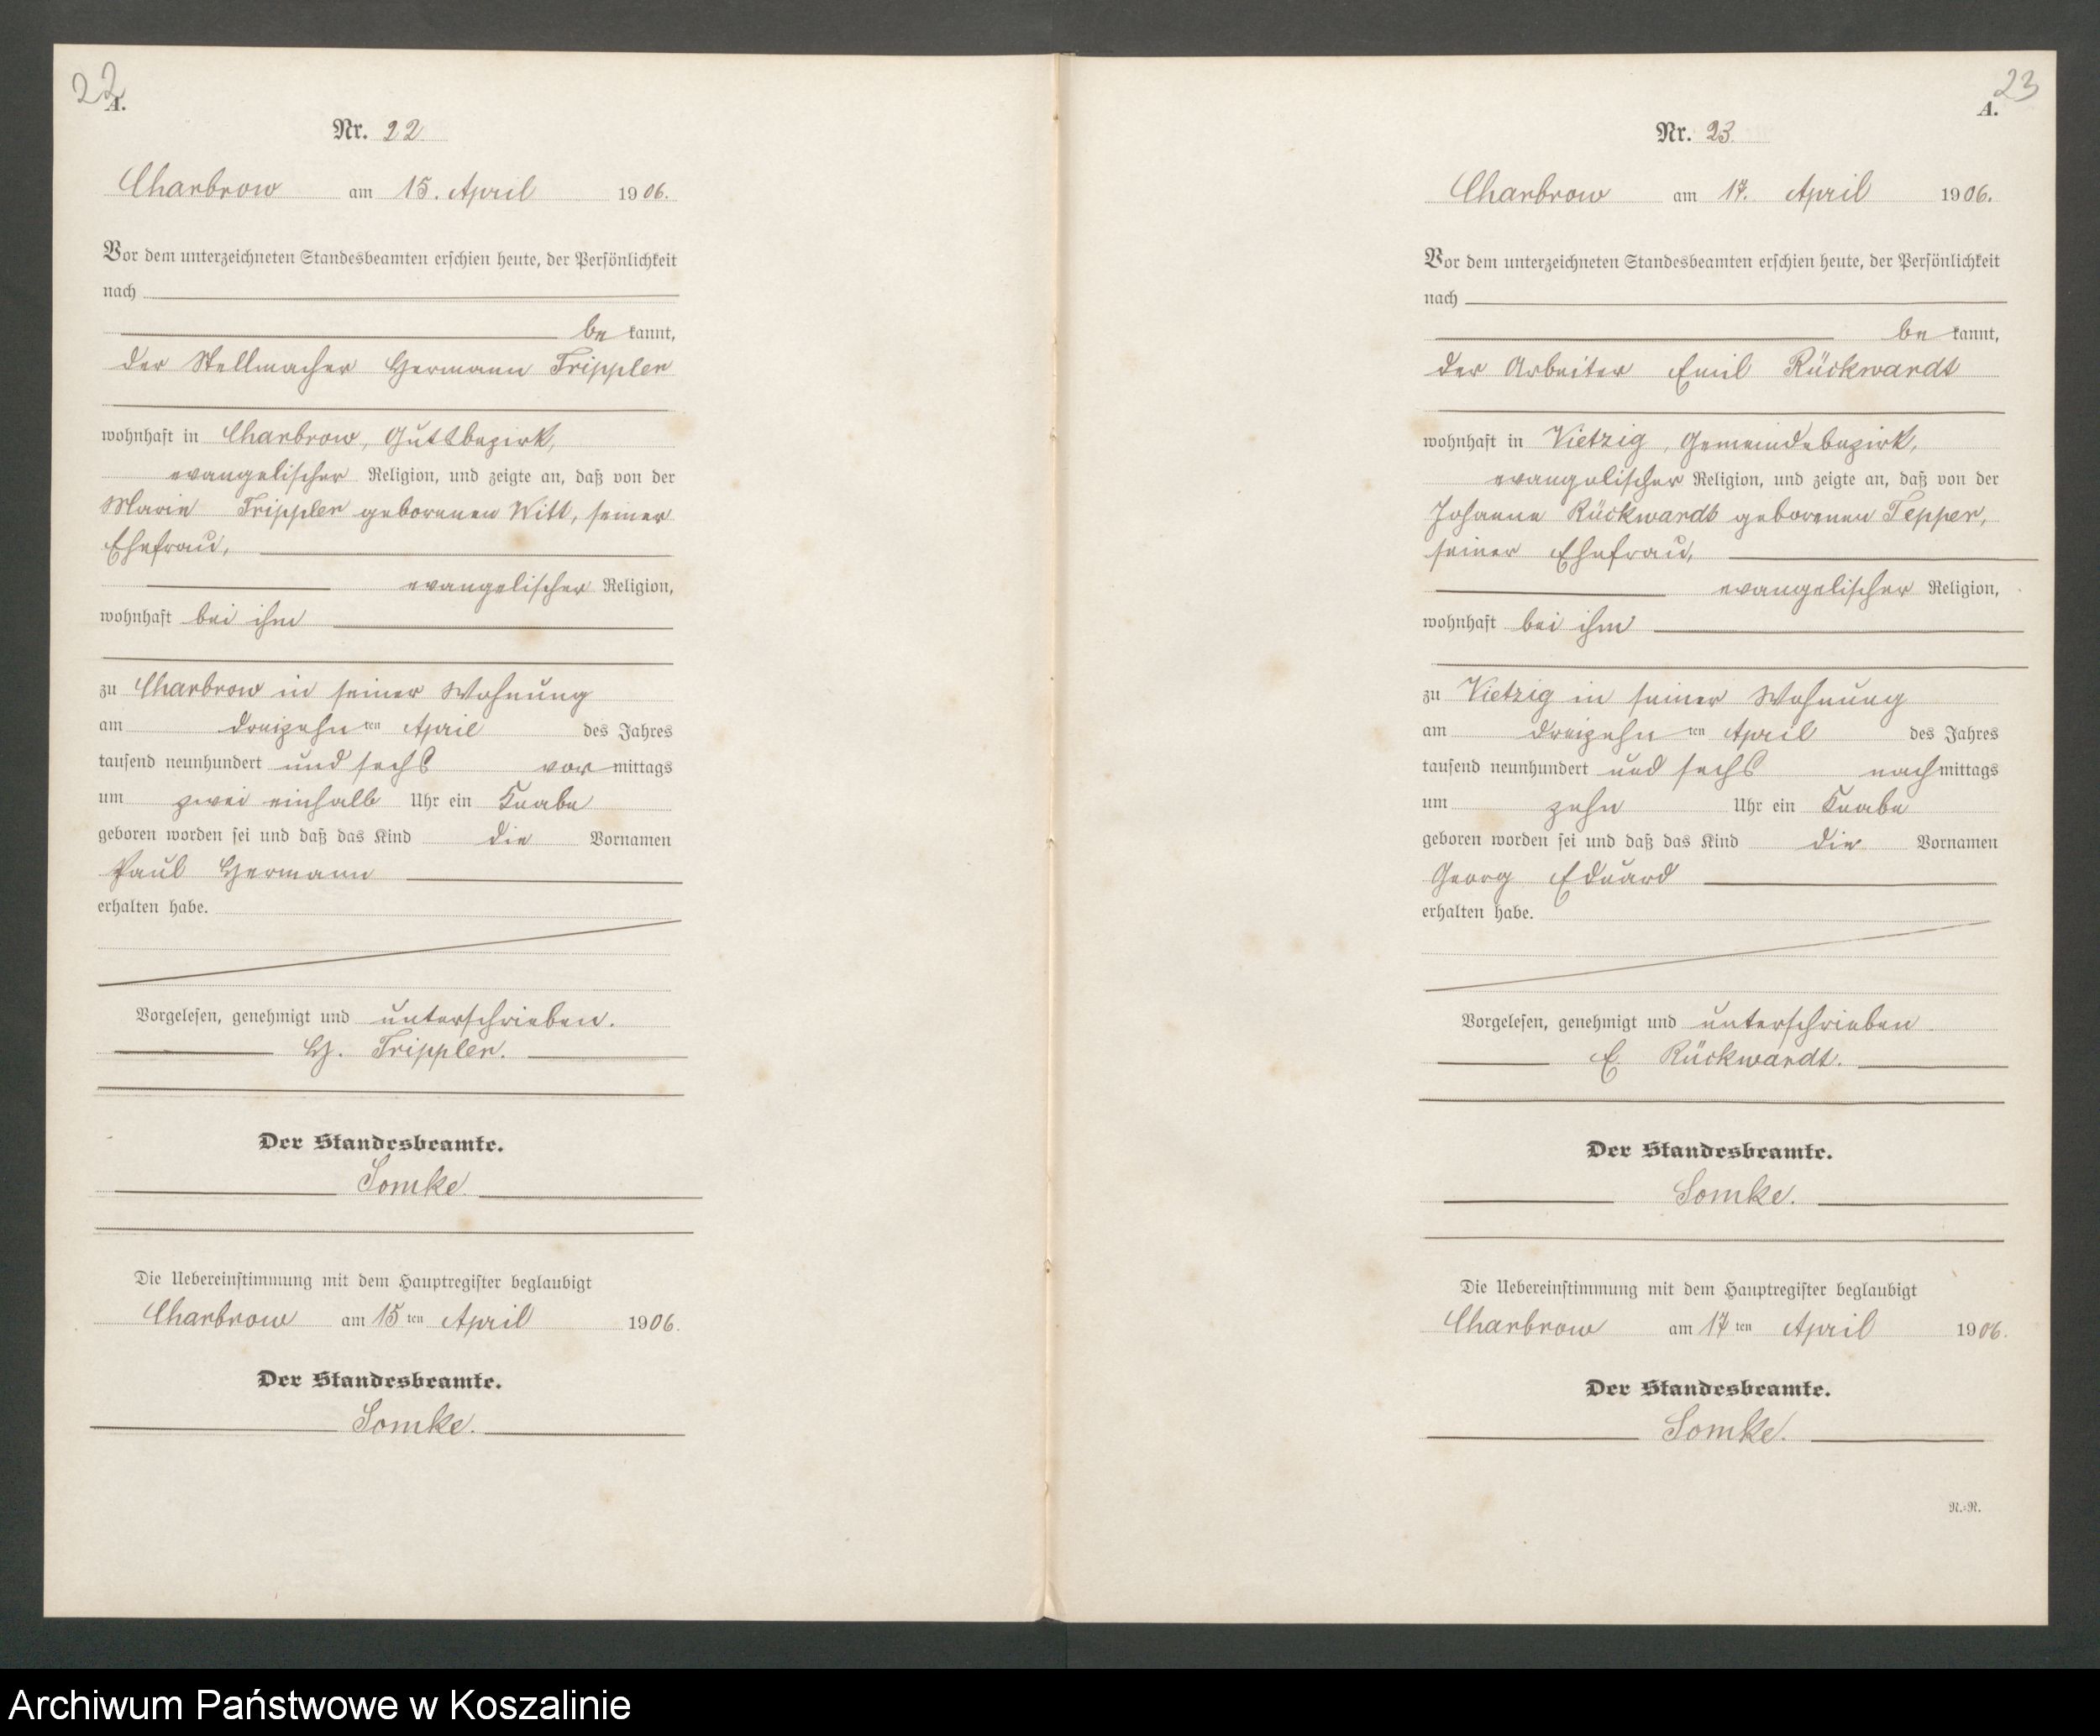 22
A.
Nr. 22.
Charbrow am 15. April 1906.
Vor dem unterzeichneten Standesbeamten erschien heute, der Persönlichkeit
nach
be kannt,
der Stellmacher Hermann Trippler
wohnhaft in Charbrow, Gutsbezirk,
evangelischer Religion, und zeigte an, daß von der
Marie Trippler geborenen Witt, seiner
Ehefrau,
evangelischer Religion,
wohnhaft bei ihm
zu Charbrow in seiner Wohnung
am dreizehn ten April des Jahres
tausend neunhundert und sechs vor mittags
um zwei einhalb Uhr ein Knabe
geboren worden sei und daß das Kind die Vornamen
Paul Hermann
erhalten habe.
Vorgelesen, genehmigt und unterschrieben.
H. Trippler.
Der Standesbeamte.
Somke.
Die Uebereinstimmung mit dem Hauptregister beglaubigt
Charbrow am 15 ten April 1906.
Der Standesbeamte.
Somke.
23
A.
Nr. 23.
Charbrow am 17. April 1906.
Vor dem unterzeichneten Standesbeamten erschien heute, der Persönlichkeit
nach
be kannt,
der Arbeiter Emil Rückwardt
wohnhaft in Vietzig, Gemeindebezirk,
evangelischer Religion, und zeigte an, daß von der
Johanne Rückwardt geborenen Tepper,
seiner Ehefrau,
evangelischer Religion,
wohnhaft bei ihm
zu Vietzig in seiner Wohnung
am dreizehn ten April des Jahres
tausend neunhundert und sechs nach mittags
um zehn Uhr ein Knabe
geboren worden sei und daß das Kind die Vornamen
Georg Eduard
erhalten habe.
Vorgelesen, genehmigt und unterschrieben.
E. Rückwardt.
Der Standesbeamte.
Somke.
Die Uebereinstimmung mit dem Hauptregister beglaubigt
Charbrow am 17 ten April 1906.
Der Standesbeamte.
Somke.
N.-R.
Archiwum Państwowe w Koszalinie